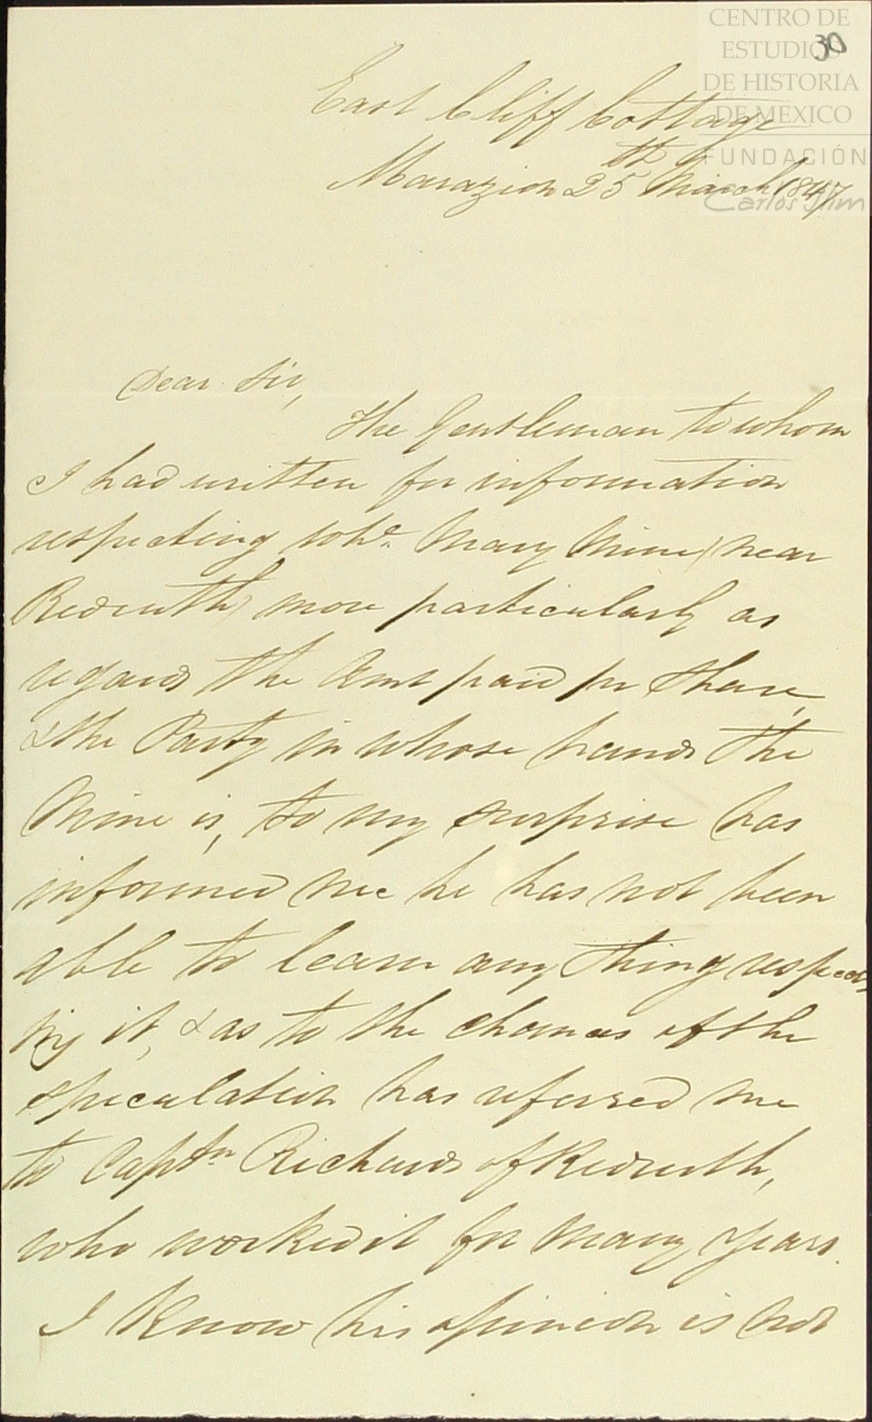 CENTRO DE
ESTUDIOS
DE HISTORIA
DE MEXICO
FUNDACIÓN
Carlos Slim
30
East Cliff Cottage
Marazion 25th March 1847
Dear Sir,
The Gentleman to whom
I had written for information
respecting Whl. Mary Mine (near
Redruth) more particularly as
regards the Amt paid pr Share,
& the Party in whose hands the
Mine is, to my surprise has
informed me he has not been
able to learn any thing respec
ting it, & as to the chances of the
speculation has referred me
to Captn Richards of Redruth,
who worked it for many years.
I know his opinion is not